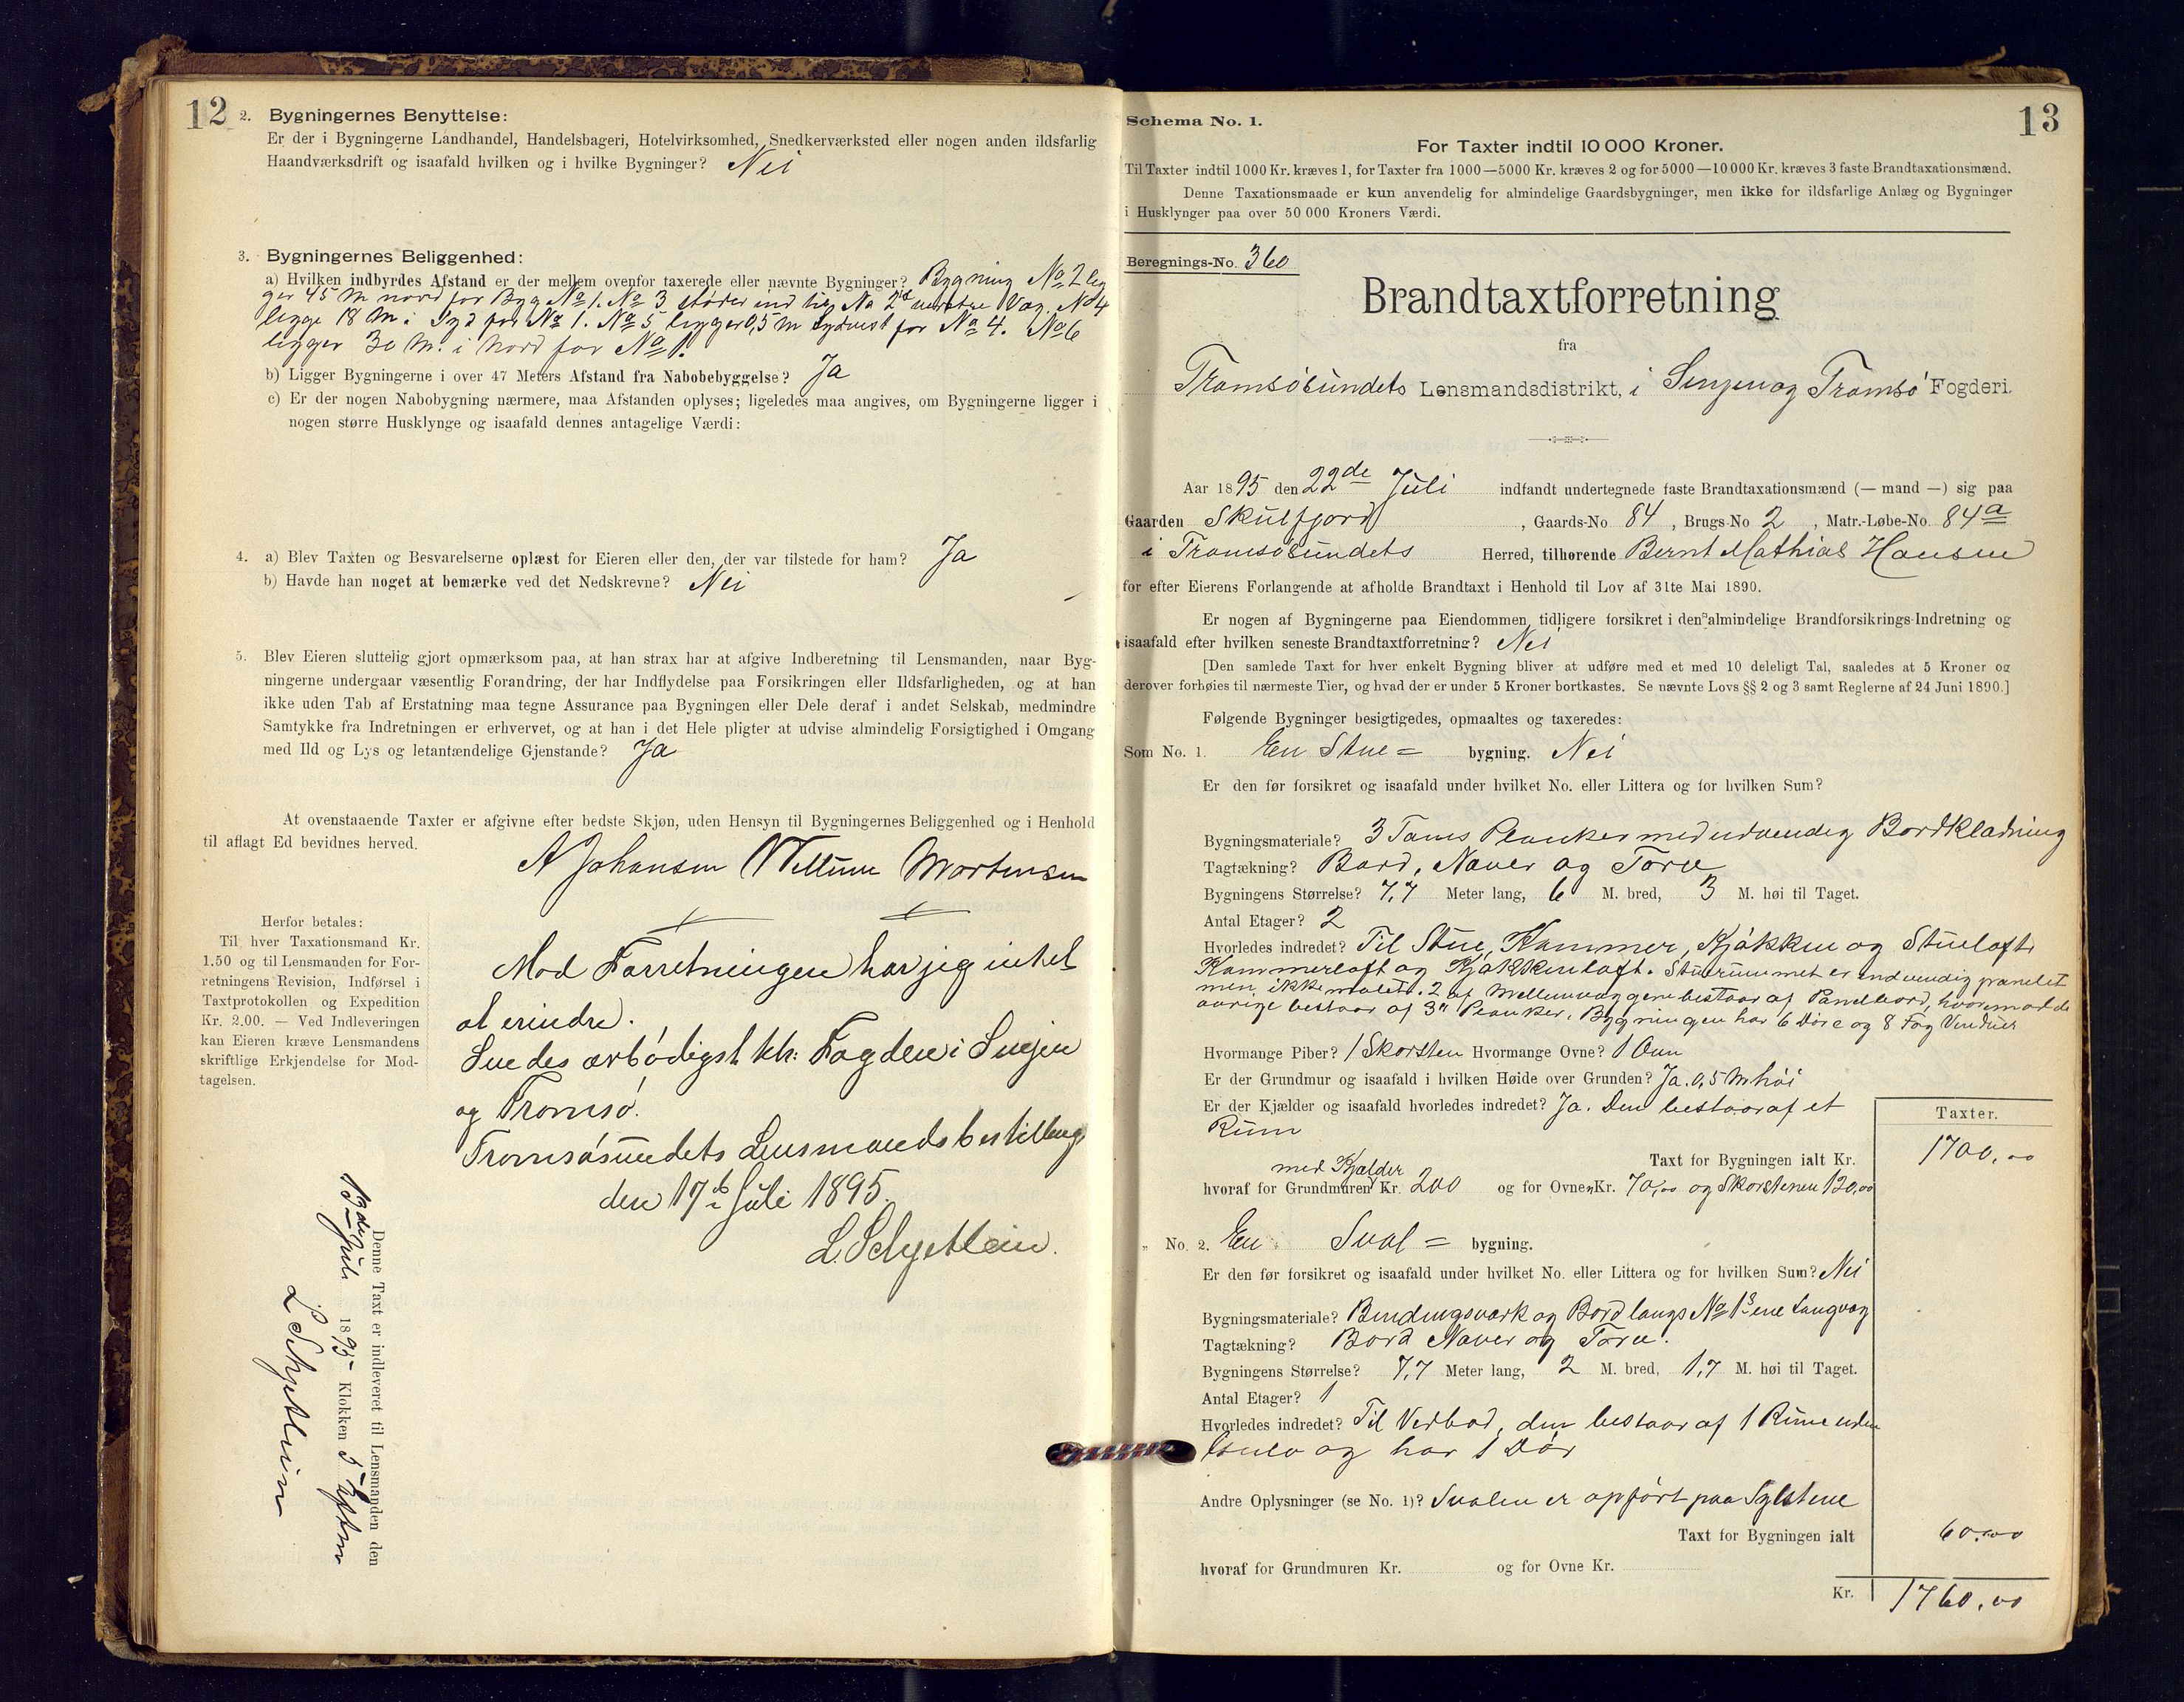 12
2. Bygningernes Benyttelse:
Er der i Bygningerne Landhandel, Handelsbageri, Hotelvirksomhed, Snedkerværksted eller nogen anden ildsfarlig
Haandværksdrift og isaafald hvilken og i hvilke Bygninger? Nei
3. Bygningernes Beliggenhed:
a) Hvilken indbyrdes Afstand er der mellem ovenfor taxerede eller nævnte Bygninger? Bygning No 2 lig
ger 45 M nord for Byg No 1. No 3 støder ind til No 2's vestre Væg. No 4
ligge 18 M. i Syd for No 1. No 5 ligger 0,5 M sydvest for No 4. No 6
ligger 30 M. i Nord for No 1.
b) Ligger Bygningerne i over 47 Meters Afstand fra Nabobebyggelse? Ja
c) Er der nogen Nabobygning nærmere, maa Afstanden oplyses; ligeledes maa angives, om Bygningerne ligger i
nogen større Husklynge og isaafald dennes antagelige Værdi:
4. a) Blev Taxten og Besvarelserne oplæst for Eieren eller den, der var tilstede for ham? Ja
b) Havde han noget at bemærke ved det Nedskrevne? Nei
5. Blev Eieren sluttelig gjort opmærksom paa, at han strax har at afgive Indberetning til Lensmanden, naar Byg-
ningerne undergaar væsentlig Forandring, der har Indflydelse paa Forsikringen eller Ildsfarligheden, og at han
ikke uden Tab af Erstatning maa tegne Assurance paa Bygningen eller Dele deraf i andet Selskab, medmindre
Samtykke fra Indretningen er erhvervet, og at han i det Hele pligter at udvise almindelig Forsigtighed i Omgang
med Ild og Lys og letantændelige Gjenstande? Ja
At ovenstaaende Taxter er afgivne efter bedste Skjøn, uden Hensyn til Bygningernes Beliggenhed og i Henhold
til aflagt Ed bevidnes herved.
A Johansen Mortensen
Herfor betales:
Til hver Taxationsmand Kr.
1.50 og til Lensmanden for For-
retningens Revision, Indførsel i
Taxtprotokollen og Expedition
Kr. 2.00. — Ved Indleveringen
kan Eieren kræve Lensmandens
skriftlige Erkjendelse for Mod-
tagelsen.
Mod Forretningen har jeg intet
at erindre.
Sendes ærbødigst Hr. Fogden i Senjen
og Tromsø.
Tromsøsundets Lensmandsbestilling
den 17de Juli 1895.
L. Schjetlein.
Denne Taxt er indleveret til Lensmanden den
13de Juli 1895 Klokken 5 Eftm
L Schjetlein
13
Schema No. 1.
For Taxter indtil 10 000 Kroner.
Til Taxter indtil 1000 Kr. kræves 1, for Taxter fra 1000—5000 Kr. kræves 2 og for 5000—10 000 Kr. kræves 3 faste Brandtaxationsmænd.
Denne Taxationsmaade er kun anvendelig for almindelige Gaardsbygninger, men ikke for ildsfarlige Anlæg og Bygninger
i Husklynger paa over 50 000 Kroners Værdi.
Beregnings-No. 360
Brandtaxtforretning
fra
Tromsøsundets Lensmandsdistrikt, i Senjen og Tromsø Fogderi.
Aar 1895 den 22de Juli indfandt undertegnede faste Brandtaxationsmænd (— mand —) sig paa
Gaarden Skulfjord, Gaards-No 84, Brugs-No 2, Matr.-Løbe-No. 84a
i Tromsøsundets Herred, tilhørende Bernt Mathias Hansen
for efter Eierens Forlangende at afholde Brandtaxt i Henhold til Lov af 31te Mai 1890.
Er nogen af Bygningerne paa Eiendommen tidligere forsikret i den almindelige Brandforsikrings-Indretning og
isaafald efter hvilken seneste Brandtaxtforretning? Nei
[Den samlede Taxt for hver enkelt Bygning bliver at udføre med et med 10 deleligt Tal, saaledes at 5 Kroner og
derover forhøies til nærmeste Tier, og hvad der er under 5 Kroner bortkastes. Se nævnte Lovs §§ 2 og 3 samt Reglerne af 24 Juni 1890.]
Følgende Bygninger besigtigedes, opmaaltes og taxeredes:
Som No. 1. En Stue= bygning. Nei
Er den før forsikret og isaafald under hvilket No. eller Littera og for hvilken Sum?
Bygningsmateriale? 3 Toms Planker med udvendig Bordklædning
Tagtækning? Bord, Næver og Torv
Bygningens Størrelse? 7,7 Meter lang, 6 M. bred, 3 M. høi til Taget.
Antal Etager? 2
Hvorledes indredet? Til Stue, Kammer, Kjøkken og Stueloft,
Kammerloft og Kjøkkenloft. Stuerummet er indvendig panelet
men ikke malet. 2 af Mellemvæggene bestaar af Panelbord, hvorimod de
øvrige bestaar af 3" Planker. Bygningen har 6 Døre og 8 Fag Vinduer
Hvormange Piber? 1 Skorsten Hvormange Ovne? 1 Ovn
Er der Grundmur og isaafald i hvilken Høide over Grunden? Ja. 0,5 M høi
Er der Kjælder og isaafald hvorledes indredet? Ja. Den bestaar af et
Rum
Taxter.
Taxt for Bygningen ialt Kr. 1700,00
med Kjælder
hvoraf for Grundmuren Kr. 200 og for Ovnen Kr. 70,00 og Skorstenen 120,00
" No. 2. En Sval= bygning.
Er den før forsikret og isaafald under hvilket No. eller Littera og for hvilken Sum? Nei
Bygningsmateriale? Bindingsværk og Bord langs No 1's ene Langvæg
Tagtækning? Bord Næver og Torv.
Bygningens Størrelse? 7,7 Meter lang, 2 M. bred, 1,7 M. høi til Taget.
Antal Etager? 1
Hvorledes indredet? Til Vedbod, den bestaar af 1 Rum uden
Gulv og har 1 Dør
Andre Oplysninger (se No. 1)? Svalen er opført paa Sylstene
Taxt for Bygningen ialt 60,00
hvoraf for Grundmuren Kr. og for Ovne Kr.
Kr. 1760,00